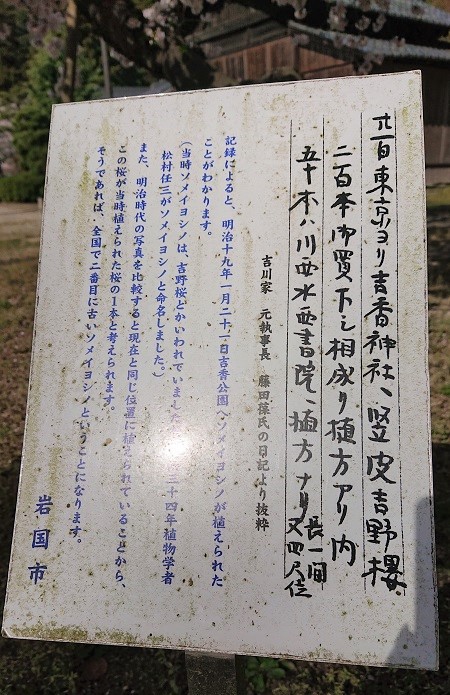 廿一日東京ヨリ吉香神社ヘ竪皮吉野櫻
二百本御買下ニ相成リ植方アリ内
五十本ハ川西水西書院ヘ植方ナリ
長一間
又四尺位
吉川家 元執事長 藤田葆氏の日記より抜粋
記録によると、明治十九年一月二十一日吉香公園へソメイヨシノが植えられた
ことがわかります。
(当時ソメイヨシノは、吉野桜とかいわれていました 三十四年植物学者
松村任三がソメイヨシノと命名しました。)
また、明治時代の写真を比較すると現在と同じ位置に植えられていることから、
この桜が当時植えられた桜の1本と考えられます。
そうであれば、全国で二番目に古いソメイヨシノということになります。
岩国市